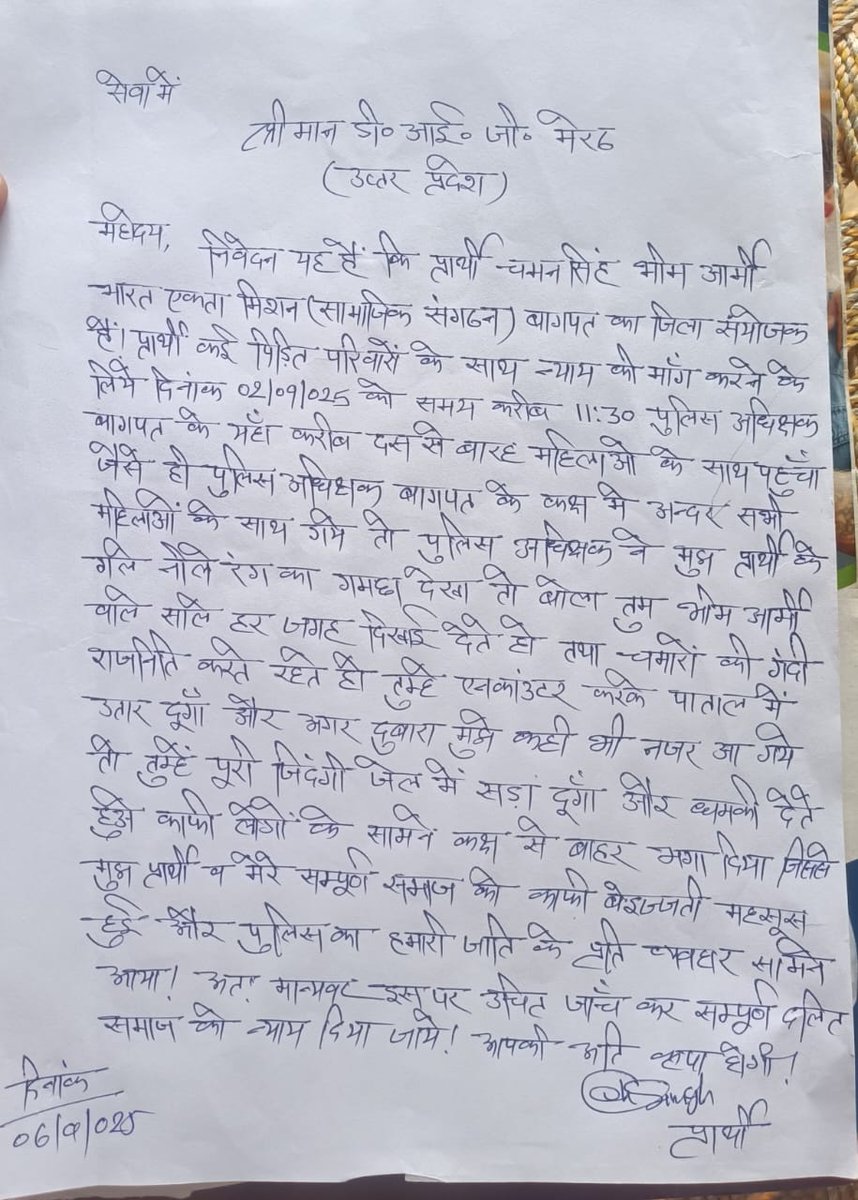 सेवा में
श्री मान डी॰ आई॰ जी॰ मेरठ
(उत्तर प्रदेश)
महोदय,
निवेदन यह हैं कि प्रार्थी चमन सिंह भीम आर्मी
भारत एकता मिशन (सामाजिक संगठन) बागपत का जिला संयोजक
हैं। प्रार्थी कई पिड़ित परिवारों के साथ न्याय की माँग करने के
लिये दिनांक 02/09/025 को समय करीब 11:30 पुलिस अधिक्षक
बागपत के यहाँ करीब दस से बारह महिलाओ के साथ पहुँचा
जैसे ही पुलिस अधिक्षक बागपत के कक्ष मे अन्दर सभी
महिलाओं के साथ गये तो पुलिस अधिक्षक ने मुझ प्रार्थी के
गले नीले रंग का गमछा देखा तो बोला तुम भीम आर्मी
वाले साले हर जगह दिखाई देते हो तथा चमारों की गंदी
राजनिति करते रहते हो तुम्हे एनकांउटर करके पाताल में
उतार दूगाँ और अगर दुबारा मुझे कही भी नजर आ गये
तो तुम्हें पूरी जिदंगी जेल में सड़ा दूँगा और धमकी देते
हुअे काफी लोगों के सामने कक्ष से बाहर भगा दिया जिससे
मुझ प्रार्थी व मेरे सम्पूर्ण समाज को काफी बेइज्जती महसूस
हुई और पुलिस का हमारी जाति के प्रति व्यवहार सामने
आया! अतः मान्यवर इस पर उचित जाँच कर सम्पूर्ण दलित
समाज को न्याय दिया जाये! आपकी अति कृपा होगी!
प्रार्थी
दिनांक
06/9/025